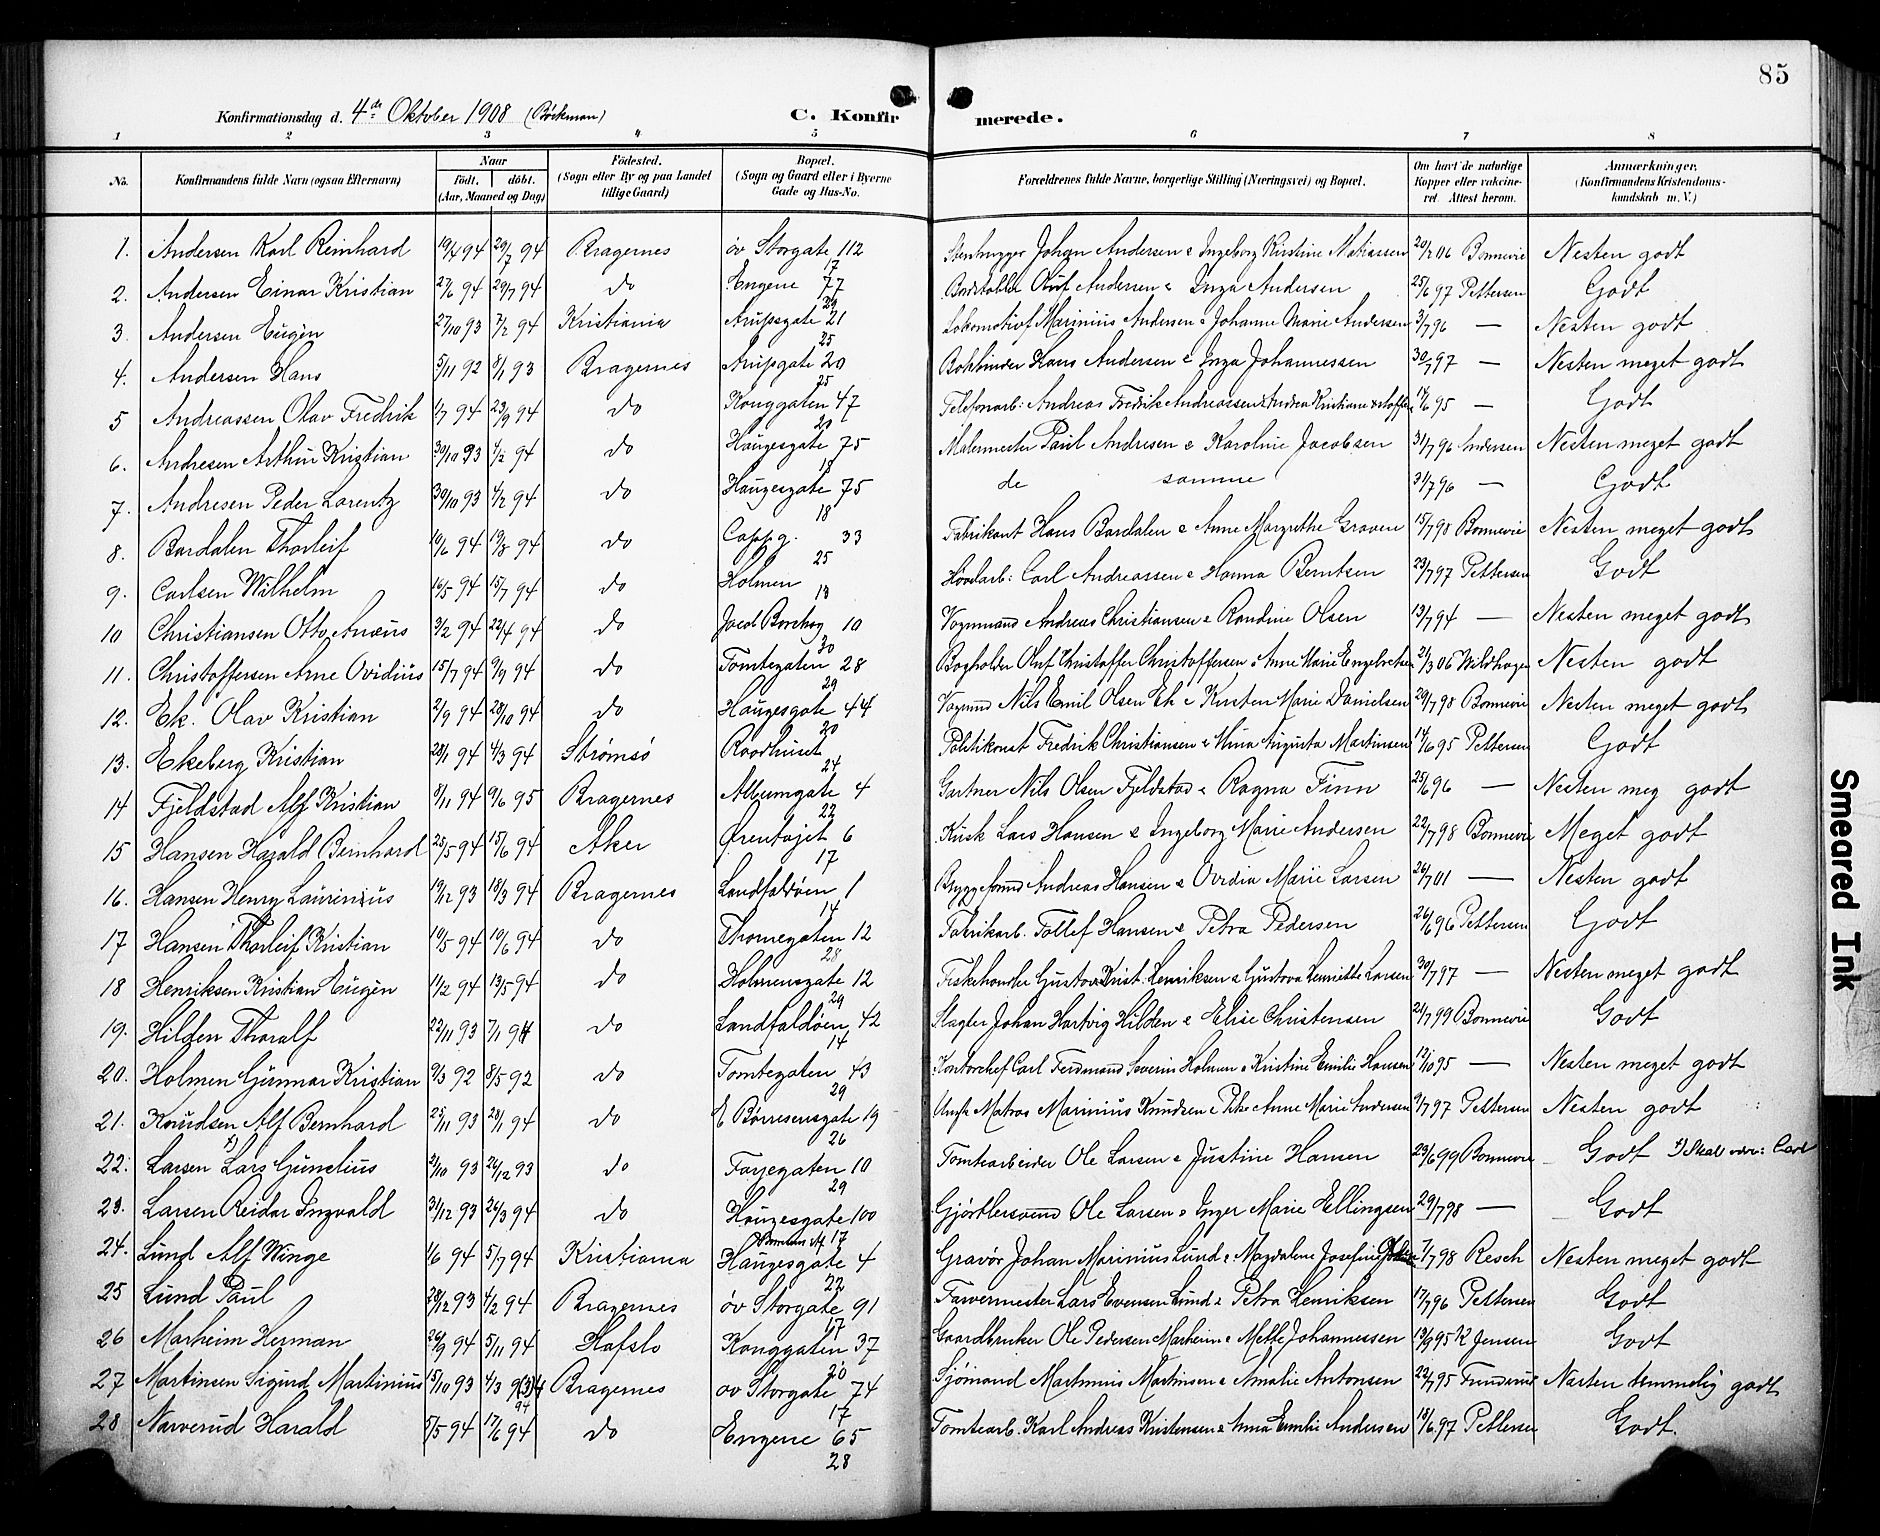 85
Konfirmationsdag d. 4de Oktober 1908 (Böckman) C. Konfirmerede.
1 2 3 4 5 6 7 8
No. Konfirmandens fulde Navn (ogsaa Efternavn) Naar født. døbt. (Aar, Maaned og Dag) Fødested. (Sogn eller By og paa Landet tillige Gaard) Bopæl. (Sogn og Gaard eller i Byerne Gade og Hus-No. Forældrenes fulde Navne, borgerlige Stilling (Næringsvei) og Bopæl. Om havt de naturlige Kopper eller vakcineret. Attest herom. Anmærkninger, (Konfirmandens Kristendomskundskab m. V.)
1. Andersen Karl Reinhard 19/4 94 29/7 94 Bragernes öv Storgate 112 17 Johan Andersen & Ingeborg Kirstine Matiassen 20/2 06 Bonnevie Nesten godt
2. Andersen Einar Kristian 27/6 94 29/7 94 do Engene 77 29 Oluf Andersen & Inga Andersen 25/6 97 Pettersen Godt
3. Andersen Eugén 27/10 93 7/2 94 Kristiania Arupsgate 21 25 Lokomotivf Marinius Andersen & Johanne Marie Andersen 3/7 96 — Nesten godt
4. Andersen Hans 5/11 92 8/1 93 Bragernes Arupsgate 20 25 Hans Andersen & Inga Johannessen 30/7 97 — Nesten meget godt
5 Andreassen Olav Fredrik 1/7 94 23/9 94 do Konggaten 47 20 Telefonarb: Andreas Fredrik Andreassen & Andrea Kristiane 95 — Godt
6. Andresen Arthur Kristian 30/10 93 4/2 94 do Haugesgate 75 18 Malermester Paul Andresen & Karoline Jacobsen 31/7 96 Andersen Nesten meget godt
7. Andresen Peder Lorentz 30/10 93 4/2 94 do Haugesgate 75 18 de samme 31/7 96 — Godt
8. Bardalen Thorleif 10/6 94 19/8 94 do Capp.g. 33 25 Fabrikant Hans Bardalen & Anne Margrethe Graven 15/7 98 Bonnevie Nesten meget godt
9. Carlsen Wilhelm 16/5 94 15/7 94 do Holmen 13 Carl Andreassen & Hanna Berntsen 23/7 97 Pettersen Godt
10 Christiansen Otto 3/2 94 22/4 94 do Jacob Borchsg 10 30 Vognmand Andreas Christiansen & Randine Olsen 13/7 94 — Nesten meget godt
11. Christoffersen Arne Ovidius 15/7 94 9/9 94 do Tomtegaten 28 29 Bogholder Christoffer Christoffersen & Anne Marie Engebretsen 21/3 06 Wildhagen Nesten godt
12. Ek. Olav Kristian 2/9 94 28/10 94 do Haugesgate 44 20 Nils Emil Olsen Ek & Kirsten Marie Danielsen 29/7 98 Bonnevie Nesten meget godt
13. Ekeberg Kristian 28/1 94 4/3 94 Strømsø Raadhuset 24 Politikonst Fredrik Christiansen & Mina Augusta Martinsen 95 Pettersen Godt
14 Fjeldstad Alf Kristian 8/11 94 9/6 95 Bragernes Albumgate 4 22 Gartner Nils Olsen Fjeldstad & Ragna Finn 25/6 96 — Nesten meg godt
15 Hansen Harald Bernhard 25/5 94 15/6 94 Aker Ørentøjet 6 17 Kusk Lars Hansen & Ingeborg Marie Andersen 22/7 98 Bonnevie Meget godt
16. Hansen Henry Laurinius 19/12 93 18/3 94 Bragernes Landfaldøen 1 14 Andreas Hansen & Ovidia Marie Larsen 26/7 01 — Nesten godt
17 Hansen Thorleif Kristian 10/5 94 10/6 94 do Thornegaten 12 28 Fabrikarb. Tollef Hansen & Petra Pedersen 26/6 96 Pettersen Godt
18 Henriksen Kristian Eugén 11/2 94 13/5 94 do Holmensgate 12 29 Fiskehandler Gustav Krist. Henriksen & Gustava Henriette Larsen 30/7 97 — Nesten meget godt
19. Hilden Tharalf 22/11 93 7/1 94 do Landfaldøen, 42 14 Slagter Johan Hartvig Hilden & Elise Christensen 21/7 99 Bonnevie Godt
20. Holmen Gunnar Kristian 9/3 92 8/5 92 do Tomtegaten 43 29 Kontorchef Carl Ferdinand Severin Holmen & Kristine Emilie Hansen 12/10 95 — Nesten meget godt
21. Knudsen Alf Bernhard 25/11 93 28/1 94 do E Børresensgate 19 26 Matros Marinius Knudsen & Anne Marie Andersen 9/7 97 Pettersen Nesten godt
22. Larsen x) Lars Gunelius 2/10 93 26/12 93 do Farjegaten 10 29 Tomtearbeider Ole Larsen & Justine Hansen 23/6 99 Bonnevie Godt x) Skal være: Carl
23. Larsen Reidar Ingvald 31/12 93 26/3 94 do Haugesgate 100 17 Gjørtlersvend Ole Larsen & Inger Marie Ellingsen 29/7 98 — Godt
24. Lund Alf Winge 1/6 94 5/7 94 Kristiania Haugesgate 4 22 Gravør Johan Marinius Lund & Magdalene Josefine 7/7 98 Resch Nesten meget godt
25 Lund Paul 28/12 93 4/2 94 Bragernes öv Storgate 91 17 Farvermester Lars Evensen Lund & Petra Henriksen 17/7 96 Pettersen Godt
26 Marheim Herman 26/9 94 5/11 94 Hafslo Konggaten 37 20 Gaardbruker Ole Pedersen Marheim & Mette Johannessen 13/9 95 K Jensen Godt
27 Martinsen Sigurd Martinius 15/10 93 4/3 9(3)4 94 Bragernes öv Storgate 74 17 Sjömand Martinius Martinsen & Amalie Antonsen 22/7 95 Nesten temmelig godt
28 Narverud Harald 5/5 94 17/6 94 do Engene 65 28 Tomtearb. Karl Andreas Kristensen & Anna Emilie Andersen 18/6 97 Pettersen Godt.
Smeared Ink